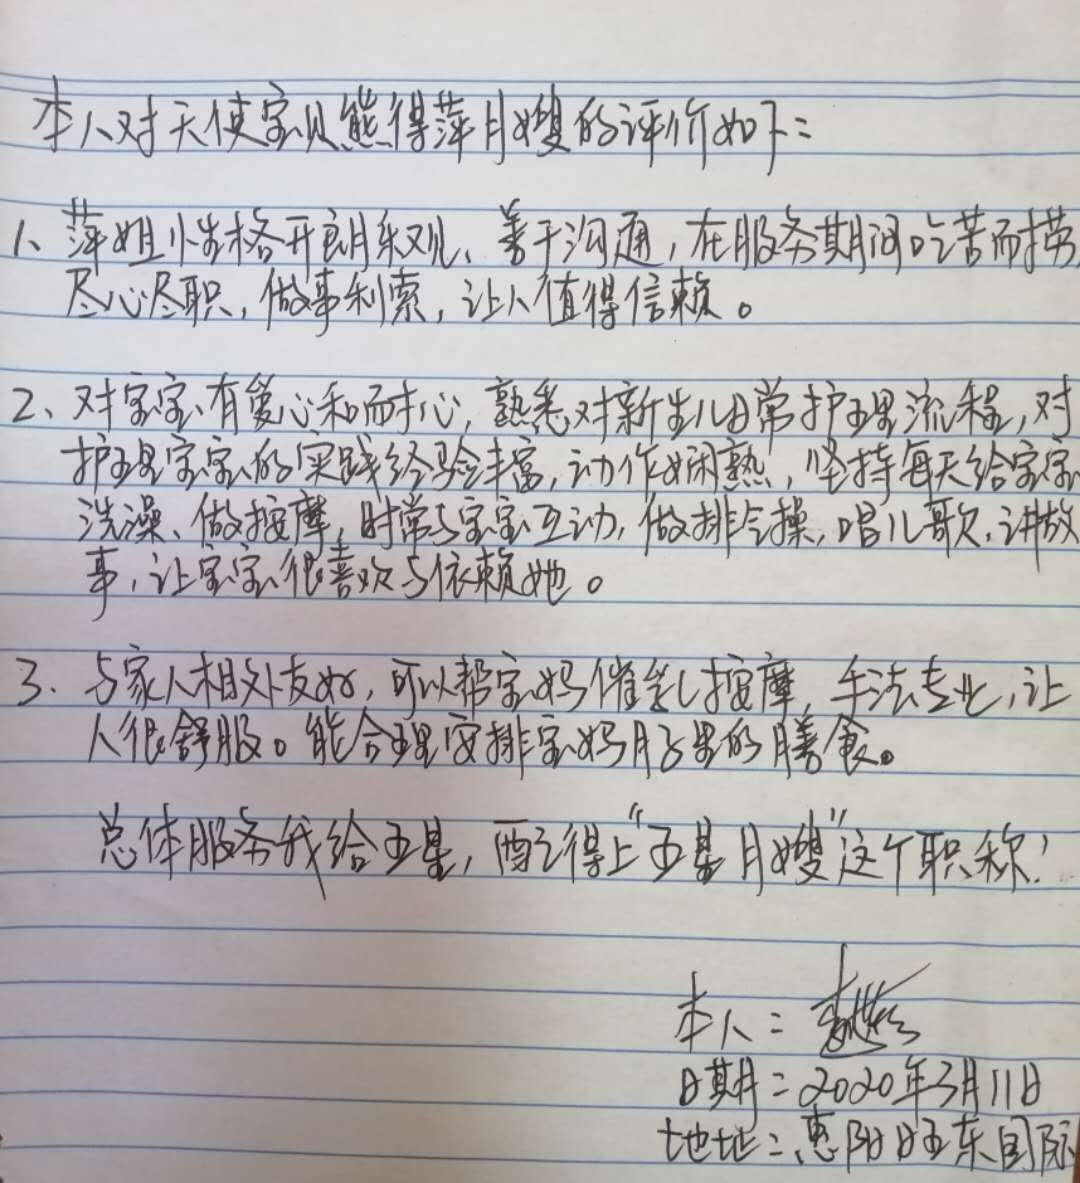 本人对天使宝贝熊得萍月嫂的评价如下:
1、萍姐性格开朗乐观、善于沟通,在服务期间吃苦而捞
尽心尽职,做事利索,让人值得信赖。
2、对宝宝有爱心和耐心,熟悉对新生儿日常护理流程,对
护理宝宝的实践经验丰富,动作娴熟,坚持每天给宝宝
洗澡、做按摩,时常与宝宝互动,做排气操,唱儿歌,讲故
事,让宝宝很喜欢与依赖她。
3、与家人相处友好,可以帮宝妈催乳按摩,手法专业,让
人很舒服。能合理安排宝妈月子里的膳食。
总体服务我给五星,配得上“五星月嫂”这个职称!
本人:
日期:2020年3月11日
地址:惠阳 东国际